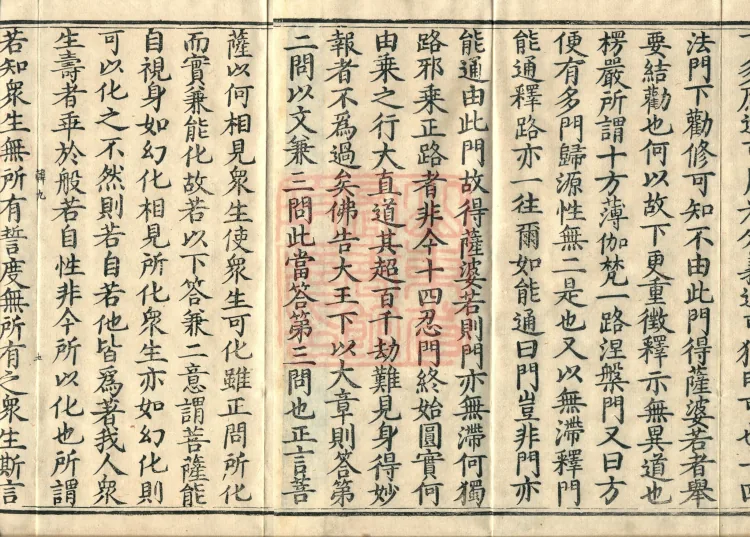 法門下勸修可知不由此門得薩婆若者舉
要結勸也何以故下更重徵釋示無異道也
楞嚴所謂十方薄伽梵一路涅槃門又曰方
便有多門歸源性無二是也又以無滯釋門
能通釋路亦一往爾如能通曰門豈非門亦
能通由此門故得薩婆若則門亦無滯何獨
路邪乗正路者非今十四忍門終始圓實何
由乗之行大直道其超百千劫難見身得妙
報者不為過矣佛告大王下以大章則答第
二問以文兼三問此當答第三問也正言菩
薩以何相見衆生使衆生可化雖正問所化
而實兼能化故若以下答兼二意謂菩薩能
自視身如幻化相見所化衆生亦如幻化則
可以化之不然則若自若他皆為著我人衆
生壽者乖於般若自性非今所以化也所謂
九
若知衆生無所有誓度無所有之衆生斯言